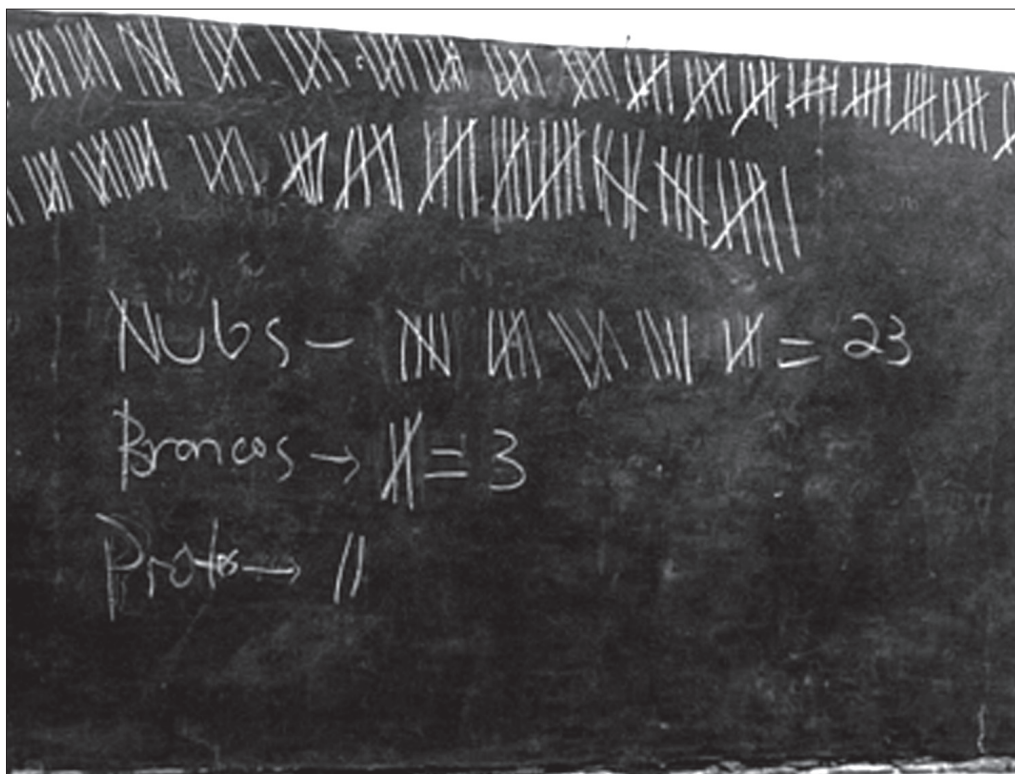 Nubs – = 23
Broncos → = 3
Protos → ||